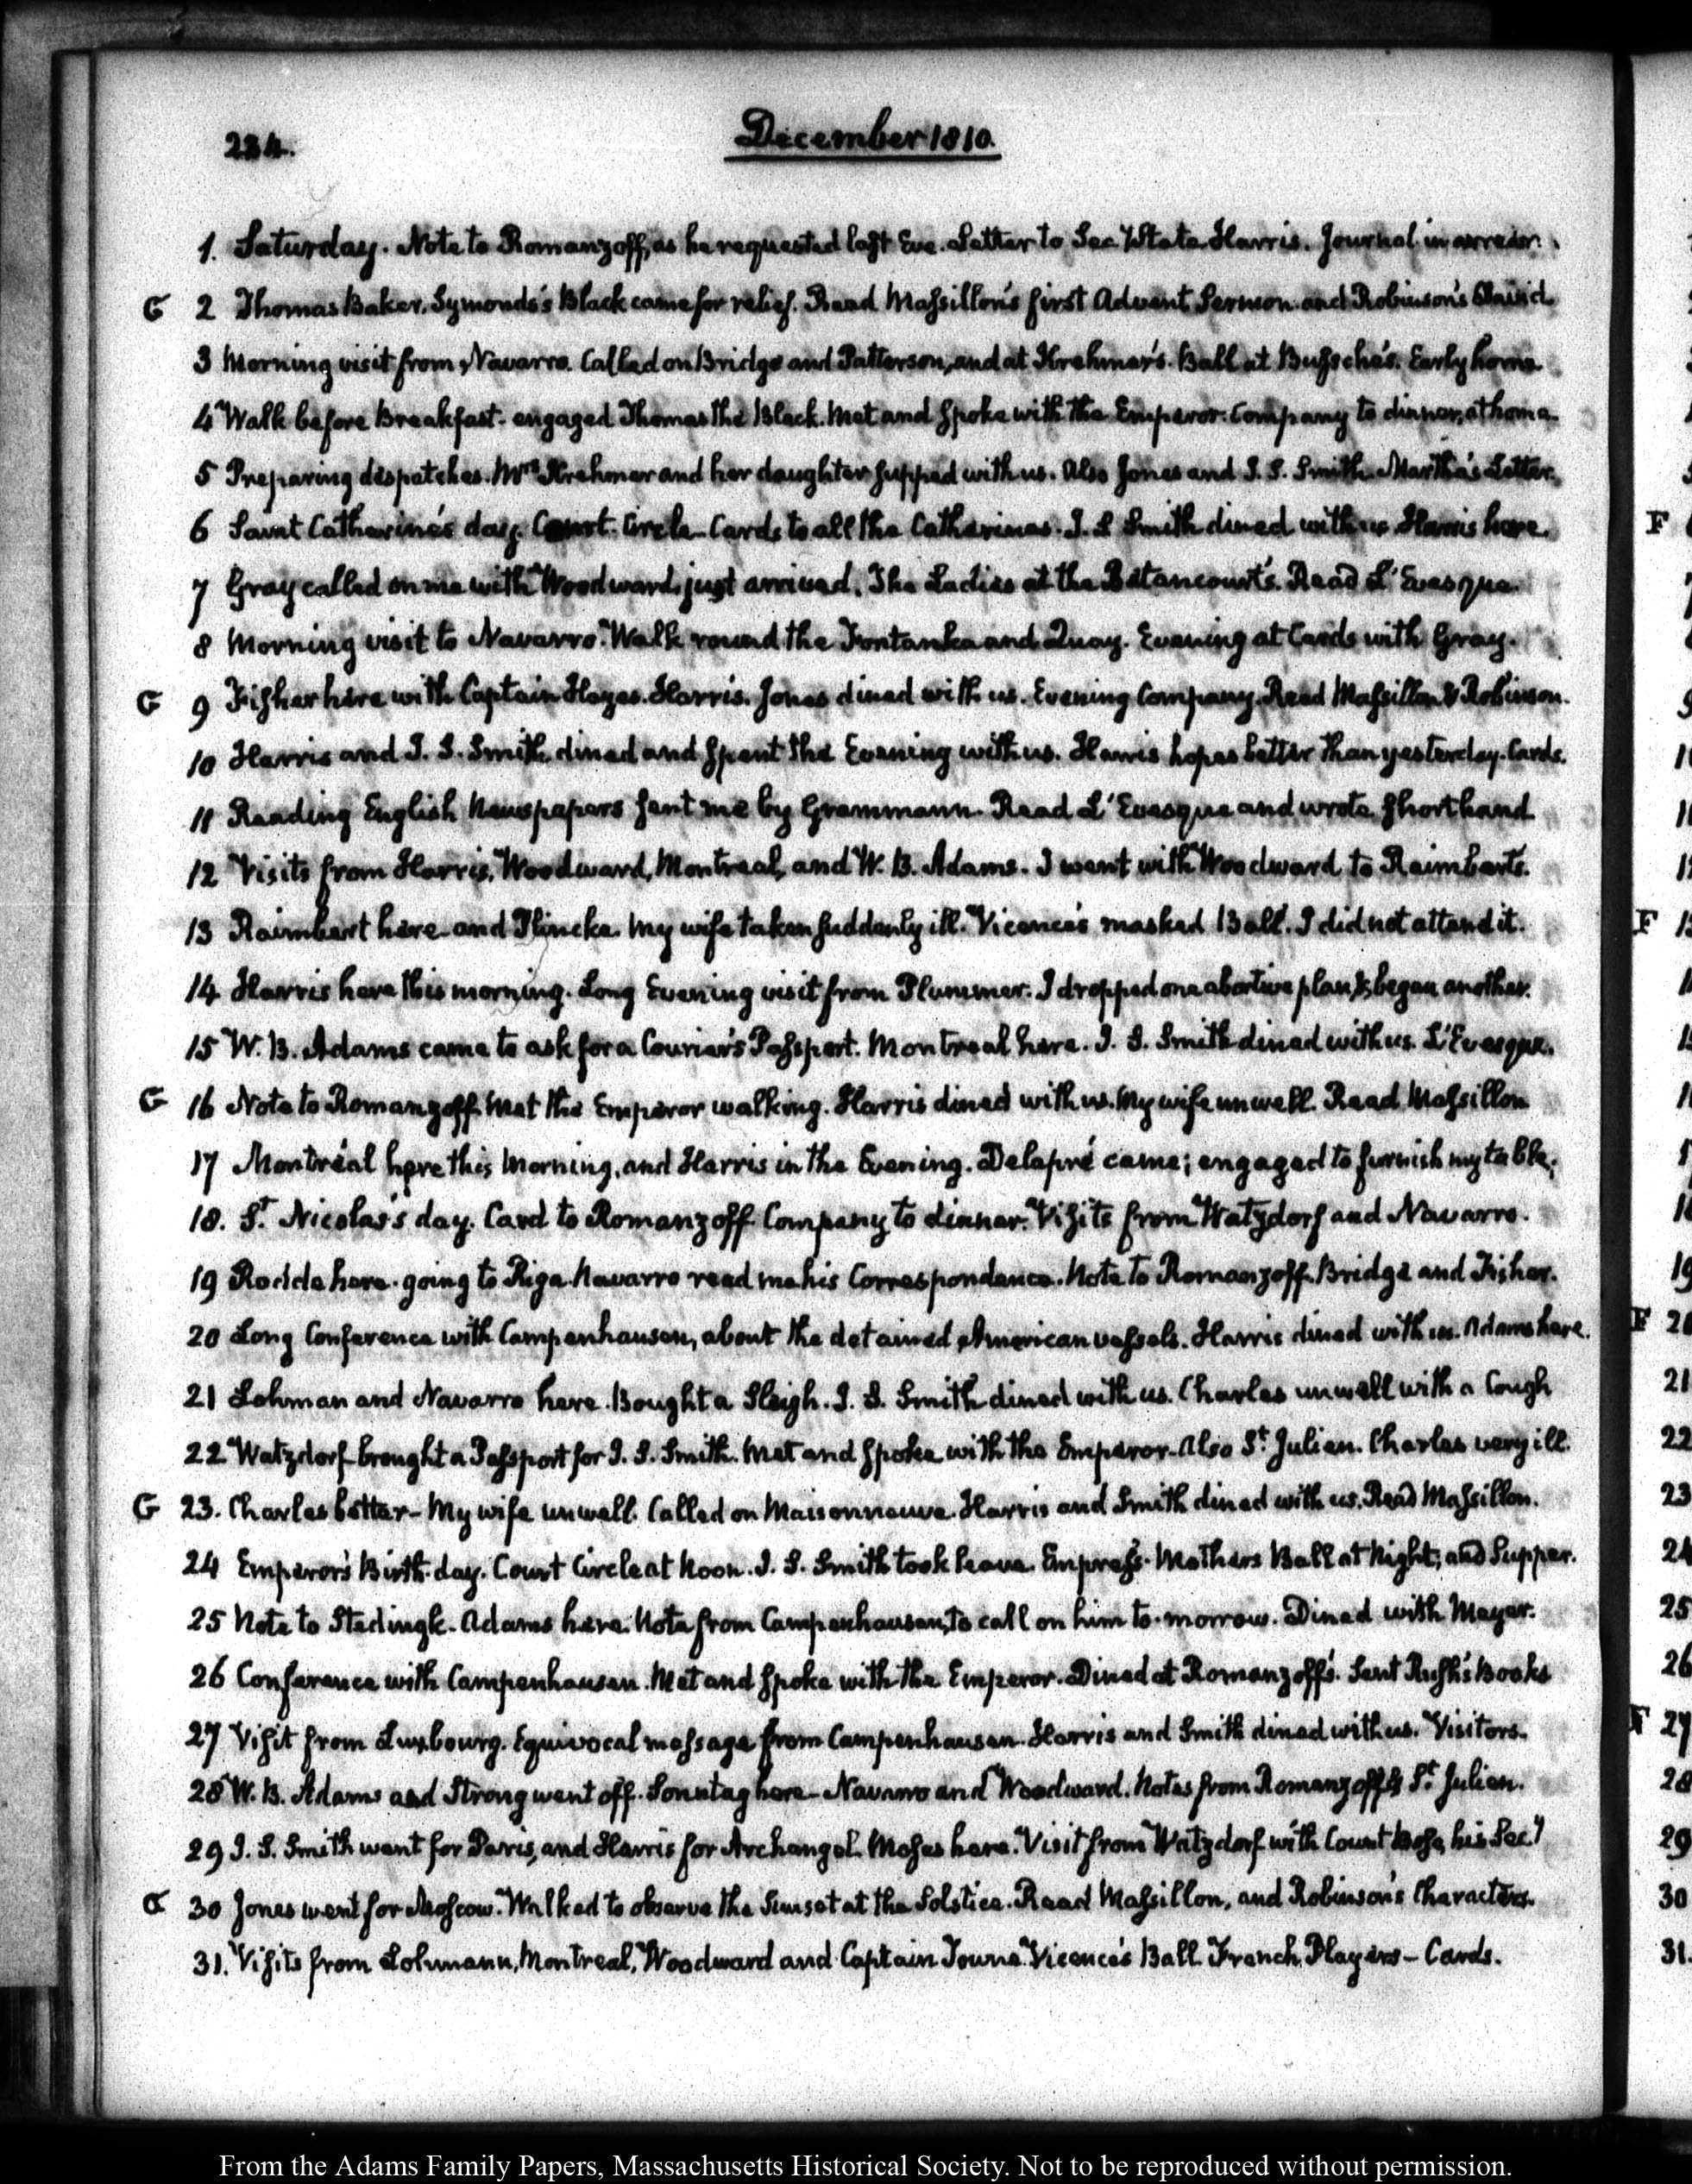 234.
December 1810.
1. Saturday. Note to Romanzoff, as he requested last Eve. Letter to Sec. State. Harris. Journal in arrear.
G 2 Thomas Baker, Symonds's Black came for relief. Read Massillon's first Advent Sermon and Robinson's
3 Morning visit from Navarro. Called on Bridge and Patterson, and at Krehmer's. Ball at Bussche's. Early home.
4 Walk before Breakfast. engaged Thomas the Black. Met and spoke with the Emperor. Company to dinner, at home.
5 Preparing despatches. Mrs. Krehmer and her daughter supped with us. Also Jones and J. S. Smith. Martha's Letter.
6 Saint Catherine's day. Court. Circle. Cards to all the Catherines. J. S Smith dined with us. Harris here.
7 Gray called on me with Woodward, just arrived. The Ladies at the Betancourt's. Read L'Evesque.
8 Morning visit to Navarro. Walk round the Fontanka and Quay. Evening at Cards with Gray.
G 9 Fisher here with Captain Hayes. Harris. Jones dined with us. Evening Company. Read Massillon & Robinson.
10 Harris and J. S. Smith, dined and spent the Evening with us. Harris hopes better than yesterday. Cards.
11 Reading English Newspapers sent me by Grammann. Read L'Evesque and wrote shorthand
12 Visits from Harris, Woodward, Montreal, and W. B. Adams. I went with Woodward to Raimbert's.
13 Raimbert here and Plincke. My wife taken suddenly ill. Vicence's masked Ball. I did not attend it.
14 Harris here this morning. Long Evening visit from Plummer. I dropped one abortive plan, & began another.
15 W. B. Adams came to ask for a Courier's Passport. Montreal here. J. S. Smith dined with us. L'Evesque.
G 16 Note to Romanzoff. Met the Emperor walking. Harris dined with us. My wife unwell. Read Massillon
17 Montréal here this Morning, and Harris in the Evening. Delapré came; engaged to furnish my table.
18. St. Nicolas's day. Card to Romanzoff. Company to dinner. Visits from Watzdorf and Navarro.
19 Rodde here. going to Riga. Navarro read me his Correspondence. Note to Romanzoff. Bridge and Fisher.
20 Long Conference with Campenhausen, about the detained American vessels. Harris dined with us. Adams here.
21 Lohman and Navarro here. Bought a Sleigh. J. S. Smith dined with us. Charles unwell with a Cough
22 Watzdorf brought a Passport for J. S. Smith. Met and spoke with the Emperor. Also St. Julien. Charles very ill.
G 23. Charles better - My wife unwell. Called on Maisonneuve. Harris and Smith dined with us. Read Massillon.
24 Emperor's Birth-day. Court Circle at Noon. J. S. Smith took leave. Empress-Mothers Ball at Night, and Supper.
25 Note to Stedingk. Adams here. Note from Campenhausen, to call on him to-morrow. Dined with Meyer.
26 Conference with Campenhausen. Met and spoke with the Emperor. Dined at Romanzoff's. Sent Books
27 Visit from Luxbourg. Equivocal message from Campenhausen. Harris and Smith dined with us. Visitors.
28 W. B. Adams and Strong went off. Sonntag here - Navarro and Woodward. Notes from Romanzoff & St. Julien.
29 J. S. Smith went for Paris, and Harris for Archangel. Moses here. Visit from Watzdorf with Count Bose, his Secy
G 30 Jones went for Moscow. Walked to observe the Sunset at the Solstice. Read Massillon, and Robinson's Characters.
31. Visits from Lohmann, Montreal, Woodward and Captain Towne. Vicence's Ball. French Players - Cards.
F
F
F
From the Adams Family Papers, Massachusetts Historical Society. Not to be reproduced without permission.